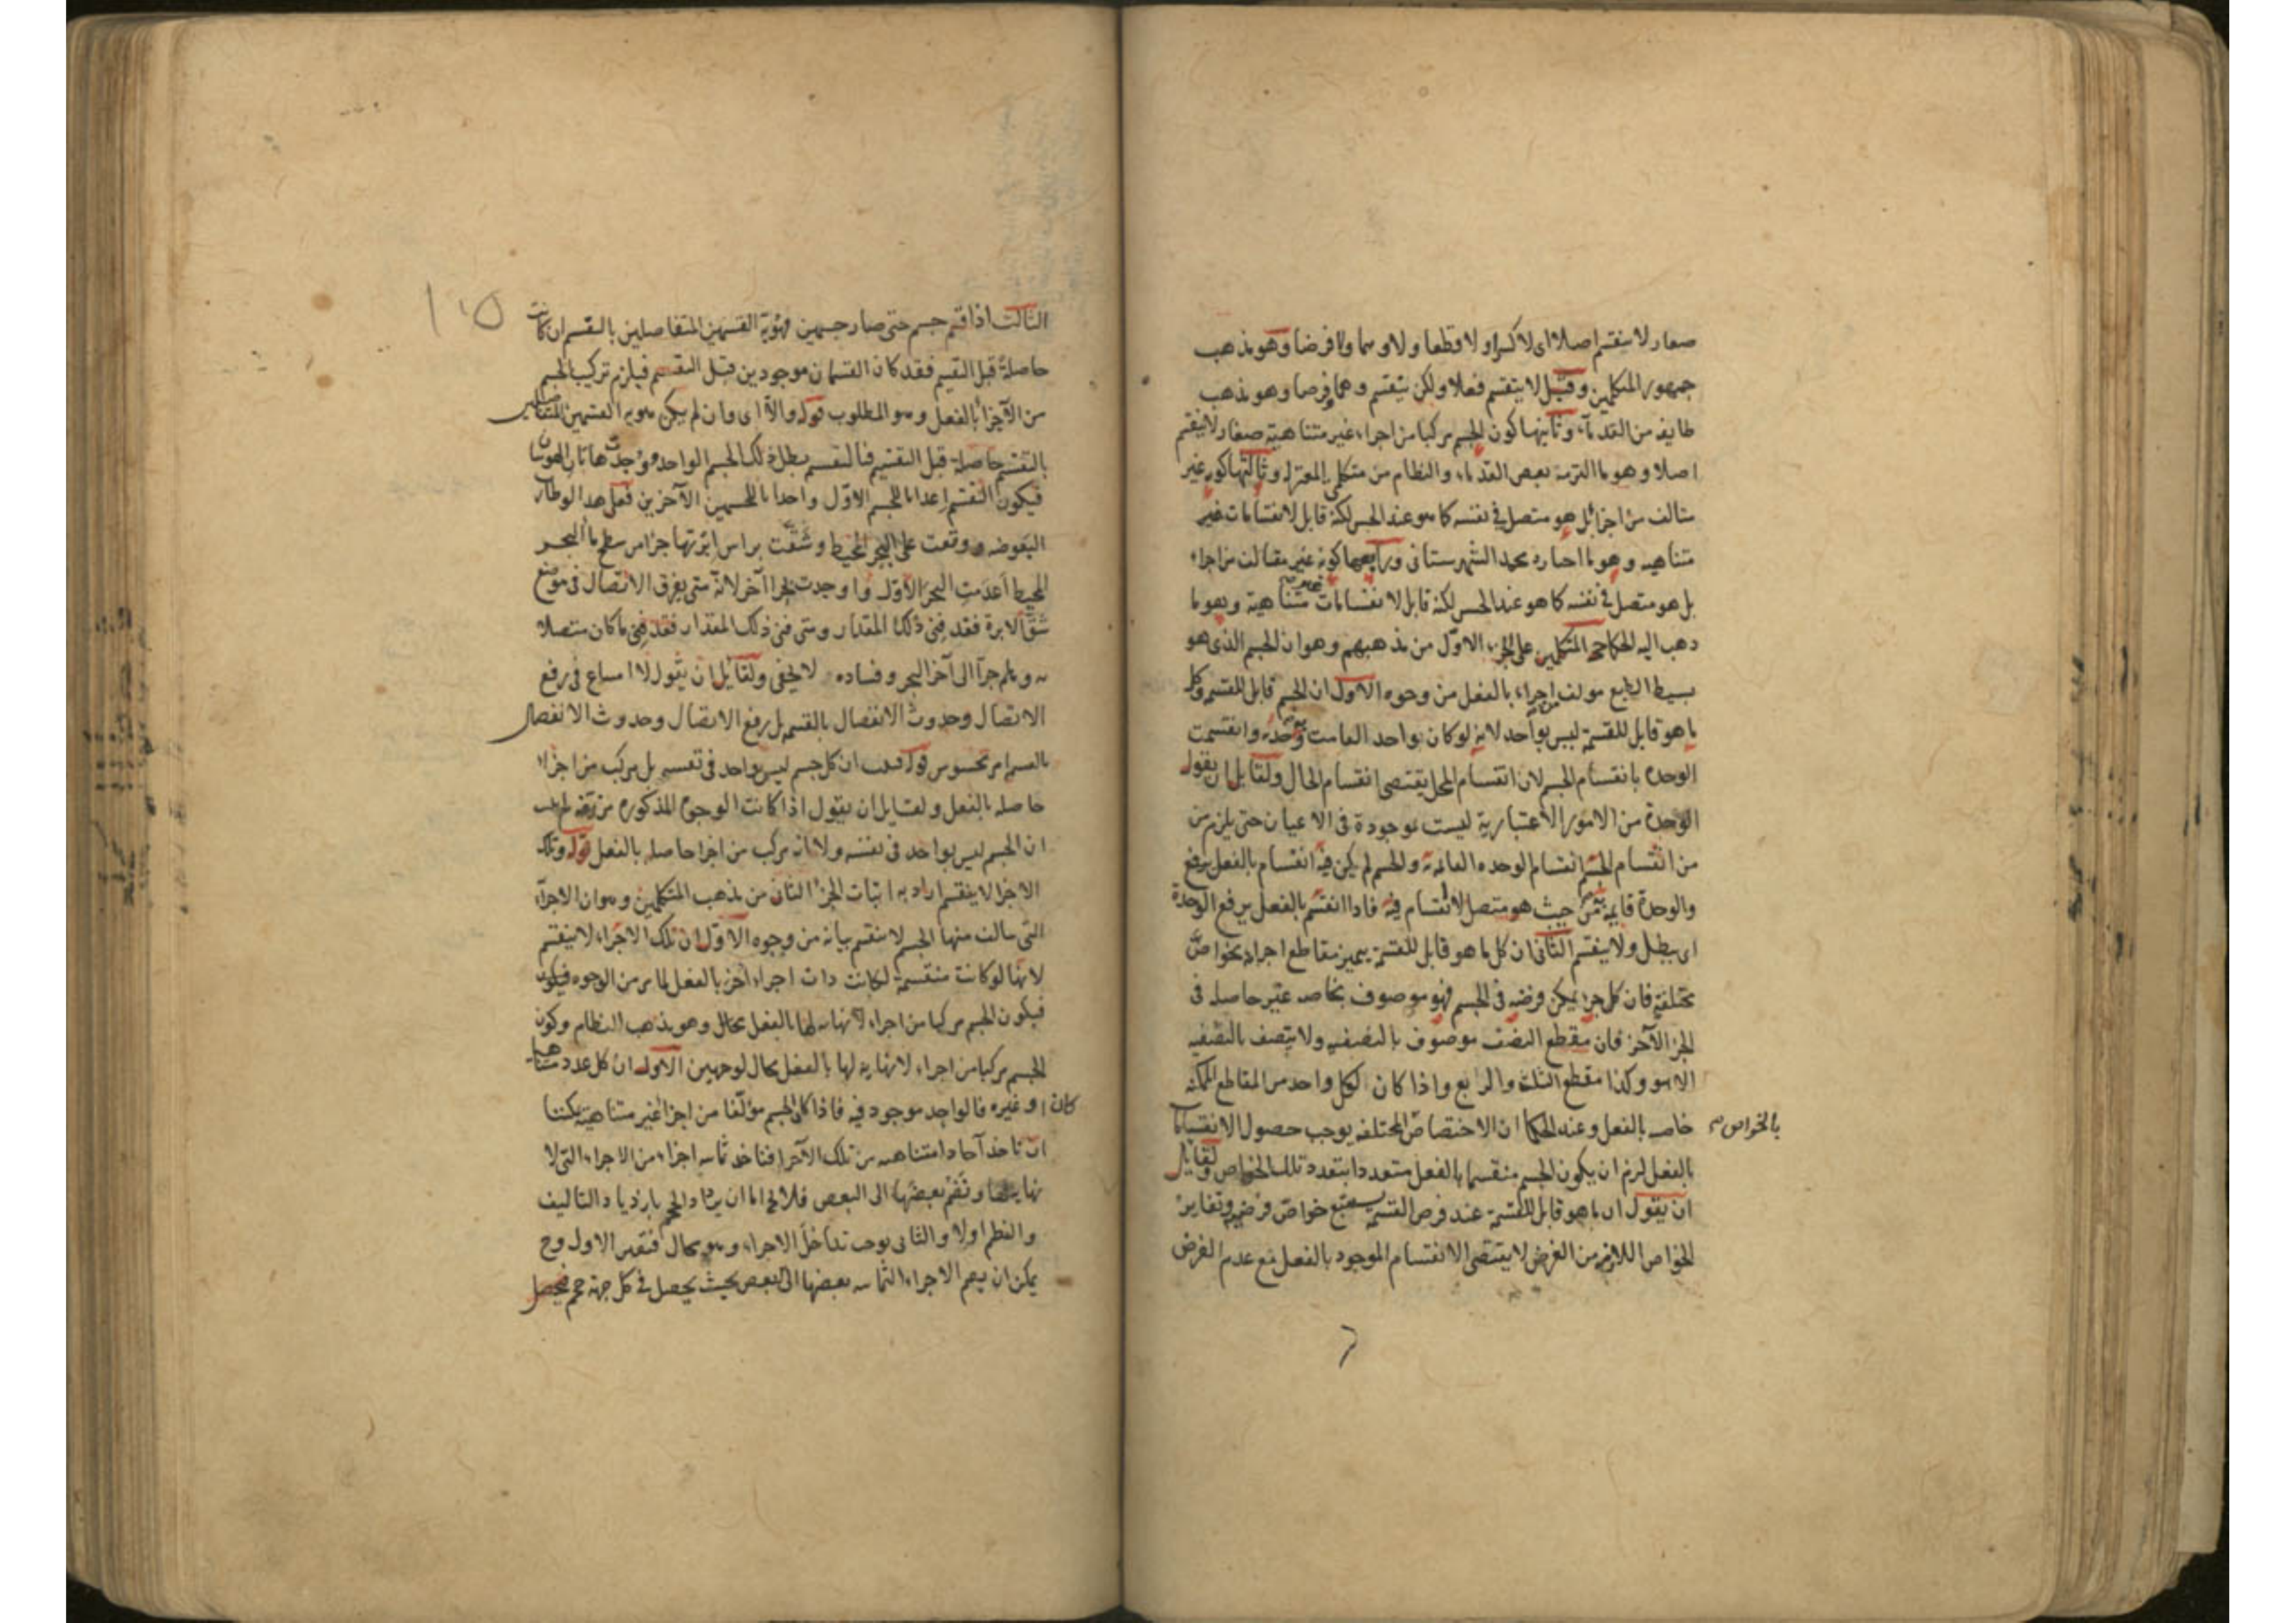 صغار لا ينقسم اصلا اى لا كسرا ولا قطعا ولا وهما ولا فرضا وهو مذهب
جمهور المتكلمين وقيل لا ينقسم فعلا ولكن ينقسم وهما وفرضا وهو مذهب
طايفة من القدماء وثانيها كون الجسم مركبا من اجزاء غير متناهية صغار لا ينقسم
اصلا وهو ما التزمه بعض القدماء والنظام من متكلمى المعتزله وثالثها كونه غير
متالف من اجزاء بل هو متصل فى نفسه كما هو عند الحس لكنه قابل لانقسامات غير
متناهيه وهو ما اختاره محمد الشهرستانى ورابعها كونه غير متالف من اجزاء
بل هو متصل فى نفسه كما هو عند الحس لكنه قابل لانقسامات غير متناهية وهو ما
ذهب اليه الحكما حج المتكلمين على الجزء الاول من مذهبهم وهو ان الجسم الذى هو
بسيط الطبع مولف من اجزاء بالفعل من وجوه الاول ان الجسم قابل للقسمه وكل
ما هو قابل للقسمة ليس بواحد لانه لو كان واحدا لقامت به وحدة وانقسمت
الوحدة بانقسام الجسم لان انقسام المحل يقتضى انقسام الحال ولقايل ان يقول
الوحدة من الامور الاعتبارية ليست موجودة فى الاعيان حتى يلزم من
من انقسام الجسم انقسام الوحده القائمة والجسم لم يكن فيه انقسام بالفعل يرفع
والوحدة قايمة به من حيث هو متصل لا انقسام فيه فاذا انقسم بالفعل يرفع الوحدة
اى يبطل ولا ينقسم الثانى ان كل ما هو قابل للقسمة يتميز مقاطع اجزايه بخواص
مختلفة فان كل جزء يمكن فرضه فى الجسم فهو موصوف بخاصه غير حاصله فى
الجزء الآخر فان مقطع النصف موصوف بالنصفيه ولا يتصف بالنصفيه
الا هو وكذا مقطع الثلث والربع واذا كان لكل واحد من المقاطع الممكنه
خاصه بالفعل وعند الحكما ان الاختصاص المختلفه يوجب حصول الانقسامات
بالخواص
بالفعل لزم ان يكون الجسم منقسما بالفعل متعددا بتعدد تلك الخواص ولقايل
ان يقول ان ما هو قابل للقسمة عند فرض القسمة يستتبع خواص فرضيه وتغاير
الخواص اللازم من الفرض لا يقتضى الانقسام الموجود بالفعل مع عدم الفرض
١١٥
الثالث اذا قسم جسم حتى صار جسمين فهوية القسمين المتفاصلين بالتقسيم ان كانت
حاصلة قبل التقسيم فقد كان القسمان موجودين قبل التقسيم فيلزم تركيب الجسم
من الاجزاء بالفعل وهو المطلوب قوله والا اى وان لم يكن هوية القسمين المتفاصلين
بالتقسيم حاصلة قبل التقسيم فبالتقسيم بطل ذلك الجسم الواحد ووجدت هاتان الهويتان
فيكون التقسيم اعداما للجسم الاول واحداثا للجسمين الآخرين فعلى هذا لو طارت
البعوضه ووقعت على البحر المحيط وشقت براس ابرتها جزءا من سطح ماء البحر
المحيط اعدمت البحر الاول واوجدت بحرا آخر لانه متى يفرق الاتصال فى موضع
شق الابرة فقد فنى ذلك المقدار ومتى فنى ذلك المقدار فقد فنى ما كان متصلا
به وهلم جرا الى آخر البحر وفساده لا يخفى ولقايل ان يقول لا امتناع فى رفع
الاتصال وحدوث الانفصال بالقسمه بل رفع الاتصال وحدوث الانفصال
بالقسمة امر محسوس قوله فثبت ان كل جسم ليس بواحد فى نفسه بل مركب من اجزاء
حاصله بالفعل ولقايل ان يقول اذا كانت الوجوه المذكوره مزيفه لم يثبت
ان الجسم ليس بواحد فى نفسه ولا انه مركب من اجزا حاصله بالفعل قوله وتلك
الاجزا لا ينقسم اراد به اثبات الجزء الثانى من مذهب المتكلمين وهو ان الاجزاء
التى تتالف منها الجسم لا ينقسم بيانه من وجوه الاول ان تلك الاجزاء لا ينقسم
لانها لو كانت منقسمة لكانت ذات اجزاء اخر بالفعل لما مر من الوجوه فيكون
فيكون الجسم مركبا من اجزاء لا نهايه لها بالفعل محال وهو مذهب النظام وكون
الجسم مركبا من اجزاء لا نهاية لها بالفعل محال لوجهين الاول ان كل عدد متناهيا
كان او غيره فالواحد موجود فيه فاذا كان الجسم مؤلفا من اجزاء غير متناهية يمكننا
ان ناخذ آحادا متناهيه من تلك الاجزاء فناخذ ثمانيه اجزاء من الاجزاء التى لا
نهاية لها ونضم بعضها الى البعض فلا يخ اما ان يزداد الحجم بازدياد التاليف
والنظم اولا والثانى يوجب تداخل الاجزاء وهو محال فتعين الاول وح
يمكن ان يضم الاجزاء الثمانيه بعضها الى البعض بحيث يحصل فى كل جهة حجم فيحصل